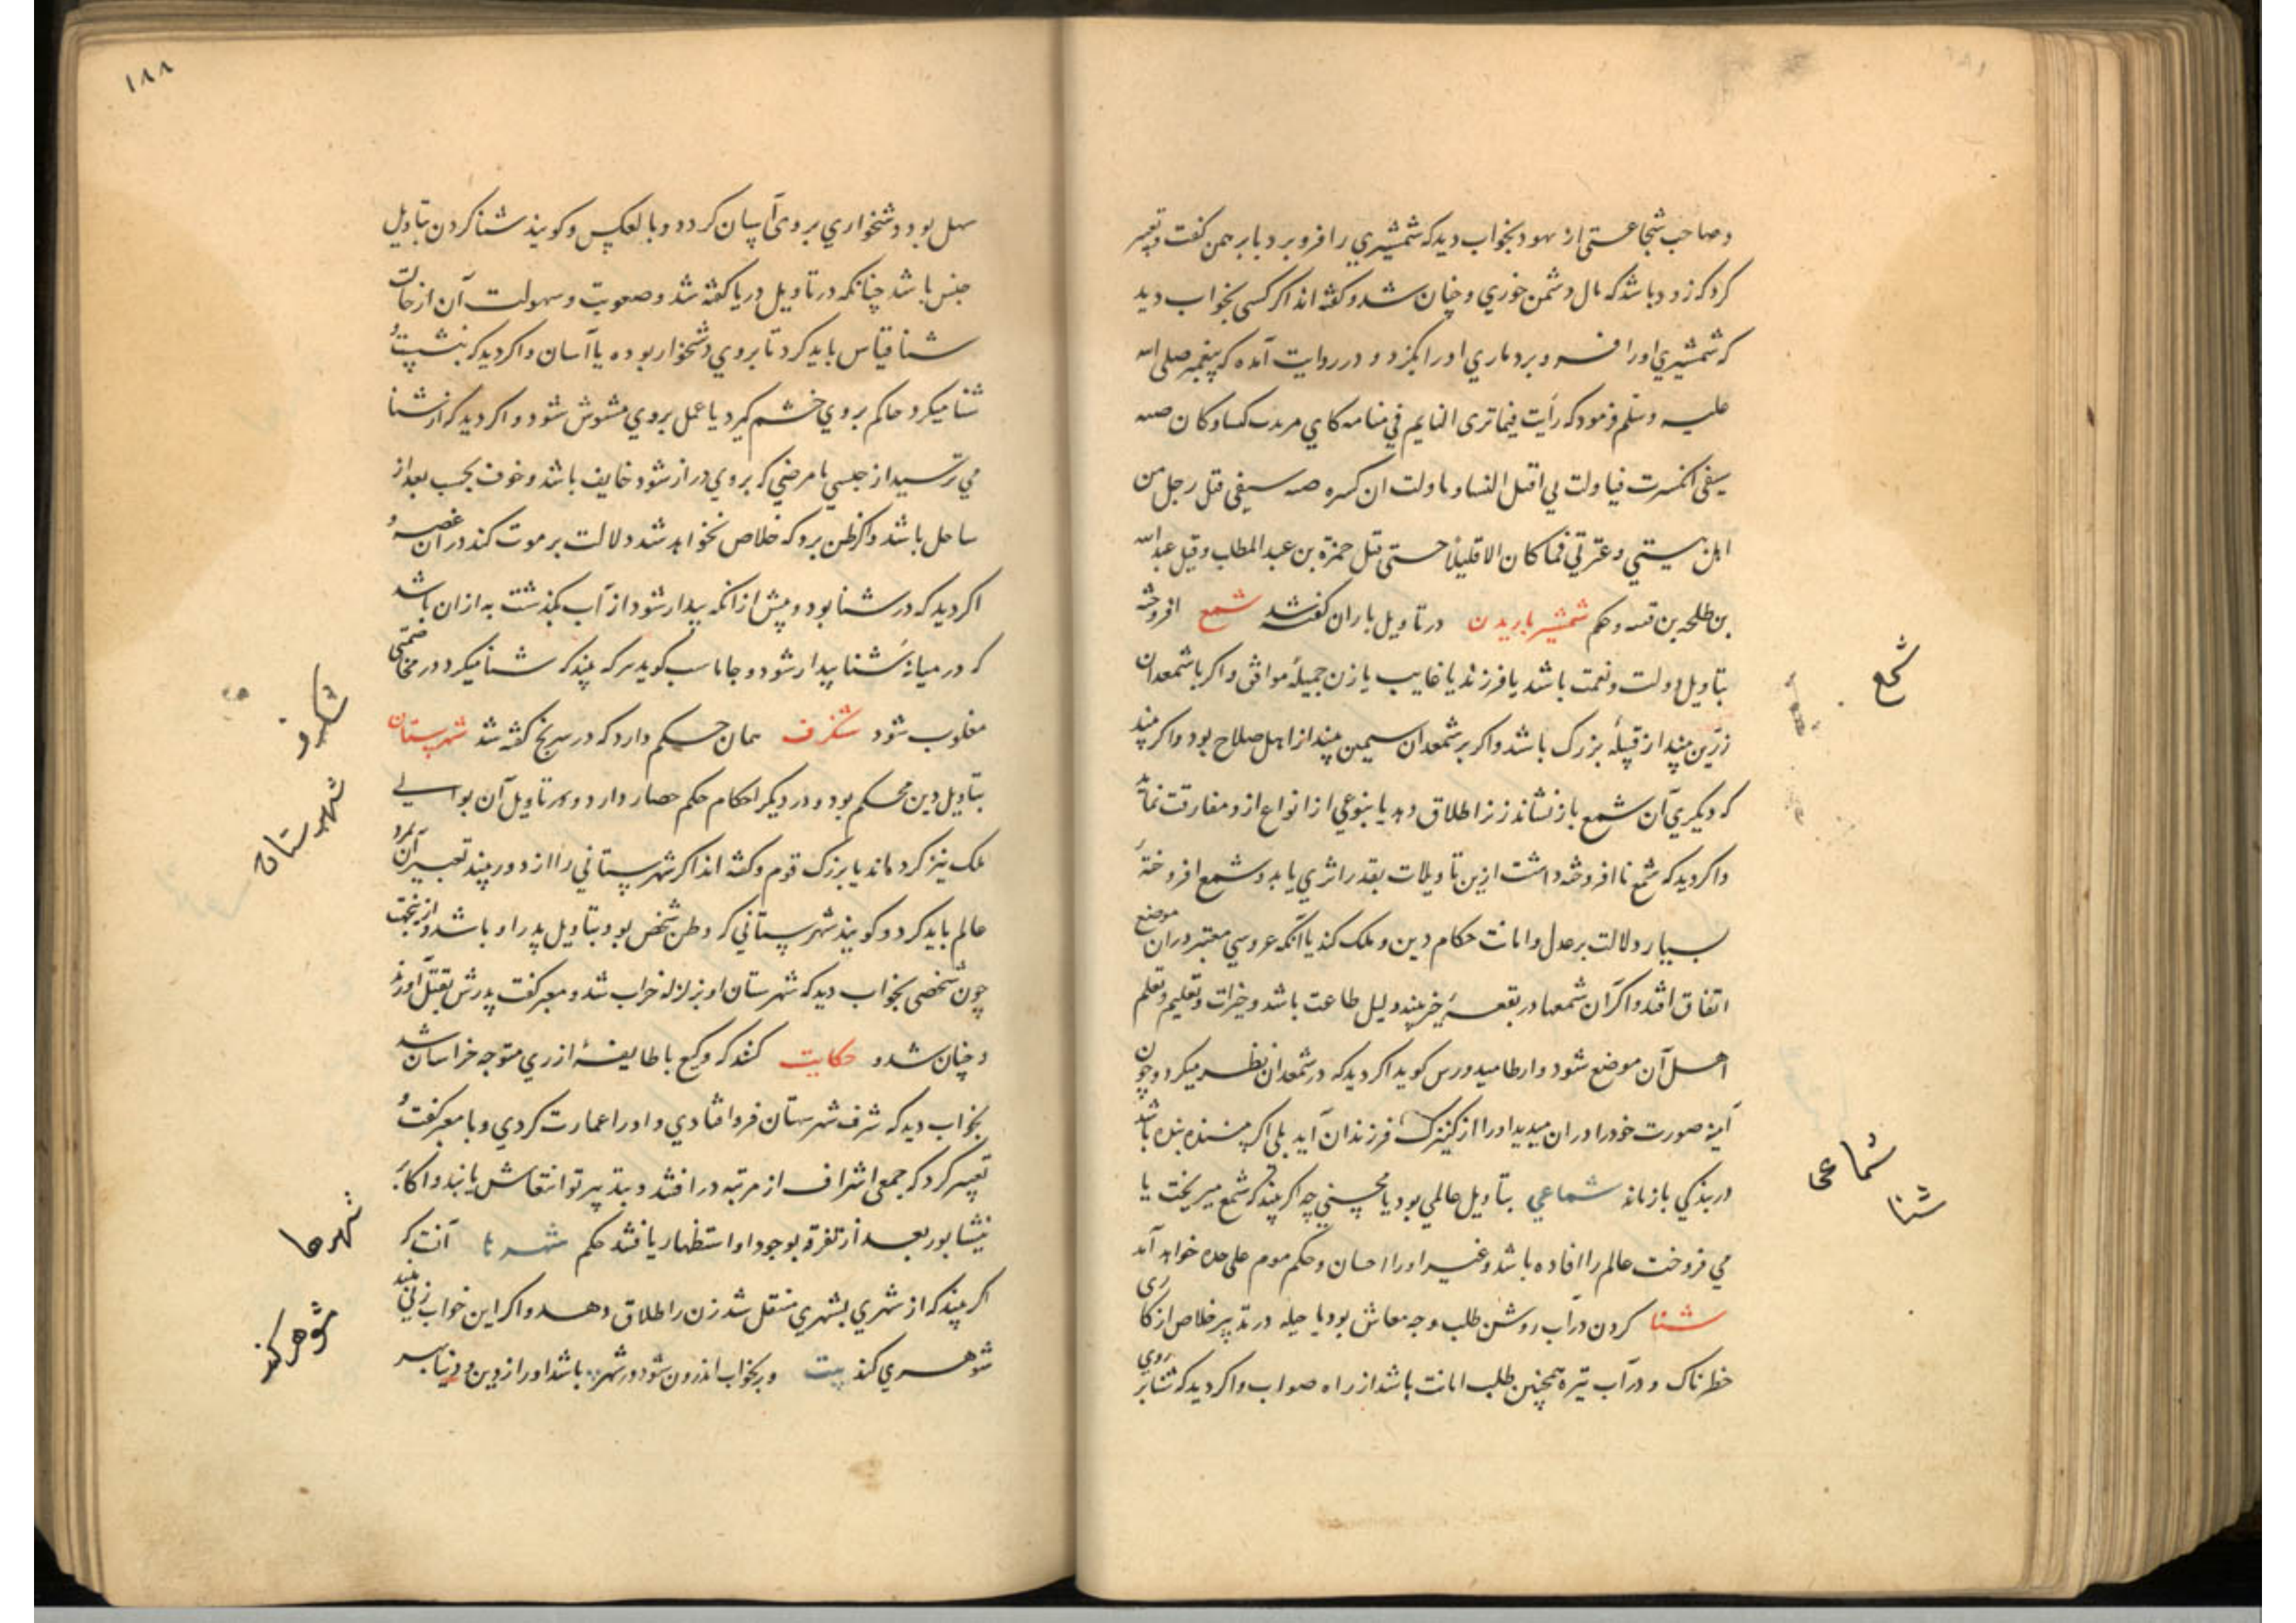 و صاحب شجاعستی از یهود بخواب دید که شمشیری را فرو برد با بر همن کفت و تعبیر
کرد که زود باشد که مال دشمن خوری و چنان شد و کفته اند اکر کسی بخواب دید
که شمشیری او را فرو برد ماری او را بکزد و در روایت آمده که پیغمبر صلی الله
علیه وسلم فرمود که رأیت فیما تری النایم فی منامه کانی مردف کبسا و کان صبه
سیفی انکسرت فاولت انی اقتل و اولت ان کسره صبه سیفی قتل رجل من
اهل بیتی و عترتی فما کان الا قلیلا حتی قتل حمزة بن عبد المطلب و قیل عبد الله
بن طلحه بن و حکم شمشیر باریدن در تاویل باران کفته شد شمع افروخته
بتاویل دولت و نعمت باشد یا فرزند یا غایب یا زن جمیلهٔ موافق و اکر با شمعدان
زرّین بیند از قبیلهٔ بزرک باشد و اکر بر شمعدان سیمین بیند از اهل صلاح بود و اکر بیند
که دیکری آن شمع باز نشاند زنرا طلاق دهد یا بنوعی از انواع ازو مفارقت نماید
و اکر دید که شمع نا افروخته داشت ازین تاویلات بقدر اثری یابد و شمع افروختهٔ
بسیار دلالت بر عدل و امانت حکام دین و ملک کند یا آنکه عروسی معتبر در آن موضع
اتفاق افتد و اکر آن شمعها در بقعهٔ خیر بیند دلیل طاعت باشد و خیرات و تعلیم و تعلم
اهل آن موضع شود و ارطامیدورس کوید اکر دید که در شمعدان نظر میکرد و چون
آینه صورت خود را در ان میدید او را از کنیزک فرزندان آید بلی اکر بیننده بنده باشد
در بندکی باز ماند شماعی بتاویل عالمی بود یا محسنی چه اکر بیند که شمع میریخت یا
می فروخت عالم را افاده باشد و غیر او را احسان و حکم موم علی حده خواهد آمد
شنا کردن در آب روشن طلب وجه معاش بود یا حیله در تدبیر خلاص از کاری
خطرناک و در آب تیره همچنین طلب امانت باشد از راه صواب و اکر دید که شنا بر روی
شمع
شماعی
شنا
۱۸۸
سهل بود دشخواری بر وی آسان کردد و بالعکس و کویند شنا کردن بتاویل
حبس باشد چنانکه در تاویل دریا کفته شد و صعوبت و سهولت آن از حالت
شنا قیاس باید کرد تا بر وی دشخوار بوده یا آسان و اکر دید که بنشیب و
شنا میکرد حاکم بر وی خشم کیرد یا عمل بر وی مشوش شود و اکر دید که از شنا
می ترسید از حبسی یا مرضی که بر وی دراز شود خایف باشد و خوف بحسب بعد از
ساحل باشد و اکر ظن برد که خلاص نخواهد شد دلالت بر موت کند در آن غصه و
اکر دید که در شنا بود و پیش از آنکه بیدار شود از آب بکذشت به از ان باشد
که در میانهٔ شنا بیدار شود و جاماسب کوید هر که بیند که شنا میکرد در مخاصمتی
مغلوب شود شنکرف همان حکم دارد که در سرنج کفته شد شهرستان
بتاویل دین محکم بود و در دیکر احکام حکم حصار دارد و در تاویل آن بوالی
ملک نیز کرده اند یا بزرک قوم و کفته اند اکر شهرستانی را از دور بیند تعبیر آن بمرد
عالم باید کرد و کویند شهرستانی که وطن شخص بود بتاویل پدر او باشد و ازینجهت
چون شخصی بخواب دید که شهرستان او بزلزله خراب شد و معبر کفت پدرش بقتل آورند
و چنان شد و حکایت کنند که وکیع با طایفهٔ از ری متوجه خراسان شد
بخواب دید که شرف شهرستان فرو افتادی و او را عمارت کردی و با معبر کفت و
تعبیر کرد که جمعی اشراف از مرتبه در افتند و بتدبیر تو انتعاش یابند و اکابر
نیشابور بعد از تفرقه بوجود او استظهار یافتند حکم شهرها آنست که
اکر بیند که از شهری بشهری منتقل شد زن را طلاق دهد و اکر این خواب زنی بیند
شوهری کند بیت و بخواب اندرون شود در شهر باشد او را از دین و دنیا بهر
شنکرف
شهرستان
شهرها
شوهر کند